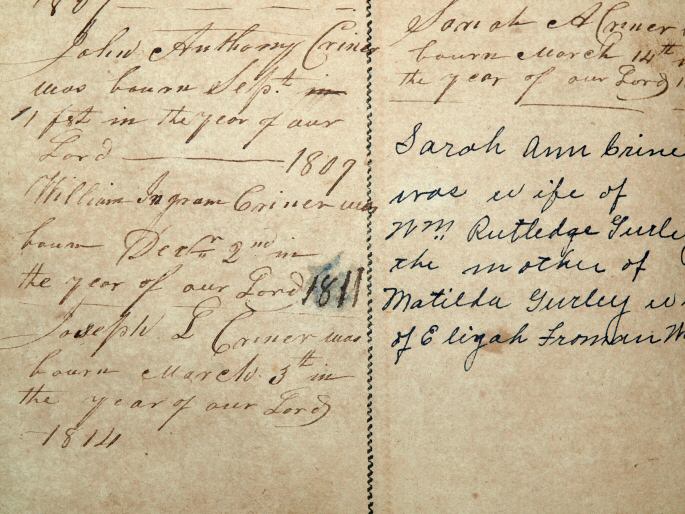 John Anthony Criner
was bourn Sept. in
1 fst in the year of our
Lord — 1809
William Ingram Criner was
bourn Decbr 2nd in
the year of our Lord 1811
Joseph L Criner was
bourn March 3th in
the year of our Lord
1814
Sarah A Criner
bourn March 14th
the year of our Lord
Sarah Ann Crine
was wife of
Wm. Rutledge Gurley
the mother of
Matilda Gurley w
of Eligah Froman W